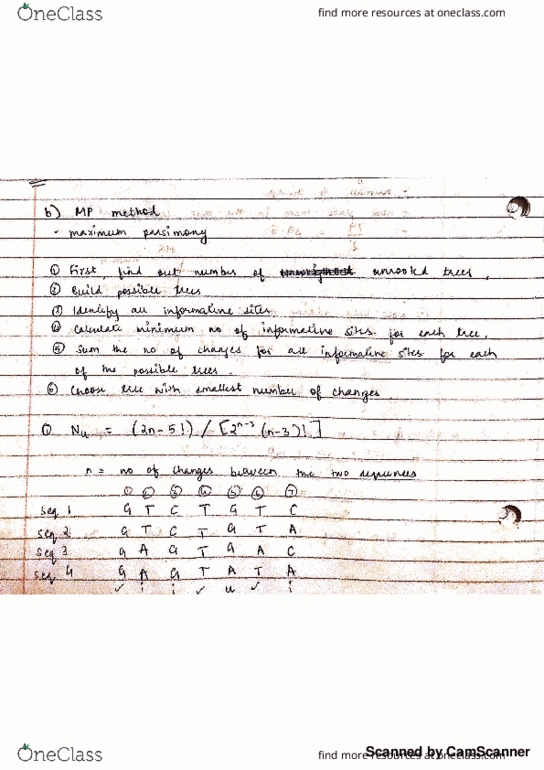 OneClass
find more resources at oneclass.com
b) MP method
- maximum parsimony
① First, find out number of unrooted trees.
② Build possible trees
③ Identify all informative sites
④ Calculate minimum no of informative sites for each tree.
⑤ Sum the no of changes for all informative sites for each
of the possible trees.
⑥ Choose tree with smallest number of changes.
① Nu = (2n-5!) / [2^n-3 (n-3)!]
n = no of changes between the two sequences
① ② ③ ④ ⑤ ⑥ ⑦
seq 1 G T C T G T C
seq 2 G T C T G T A
seq 3 G A G T G A C
seq 4 G A G T A T A
✓ i i ✓ u ✓ i
OneClass
find more resources at oneclass.com
Scanned by CamScanner